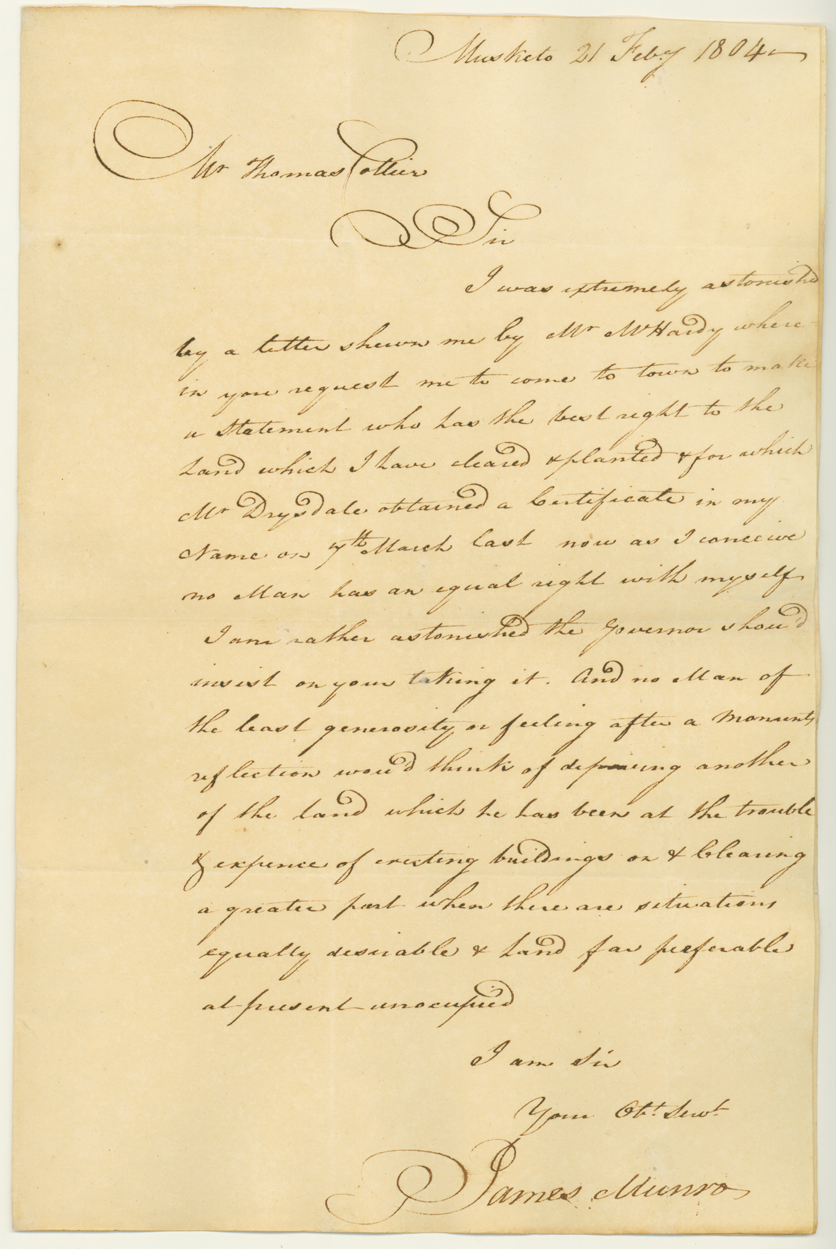 Musketo 21 Feby 1804
Mr Thomas Collier
Sir
I was extremely astonished
by a letter shewn me by Mr McHardy where-
in you request me to come to town to make
a Statement who has the best right to the
Land which I have cleared & planted & for which
Mr Drysdale obtained a Certificate in my
Name on 7th March last now as I conceive
no Man has an equal right with myself
I am rather astonished the Governor shou'd
insist on your taking it. And no Man of
the least generosity or feeling after a Moments
reflection wou'd think of depriving another
of the land which he has been at the trouble
& expence of erecting buildings on & Clearing
a greater part when there are situations
equally desirable & Land far preferable
at present unocupied
I am Sir
Your Obt. Servt.
James Munro